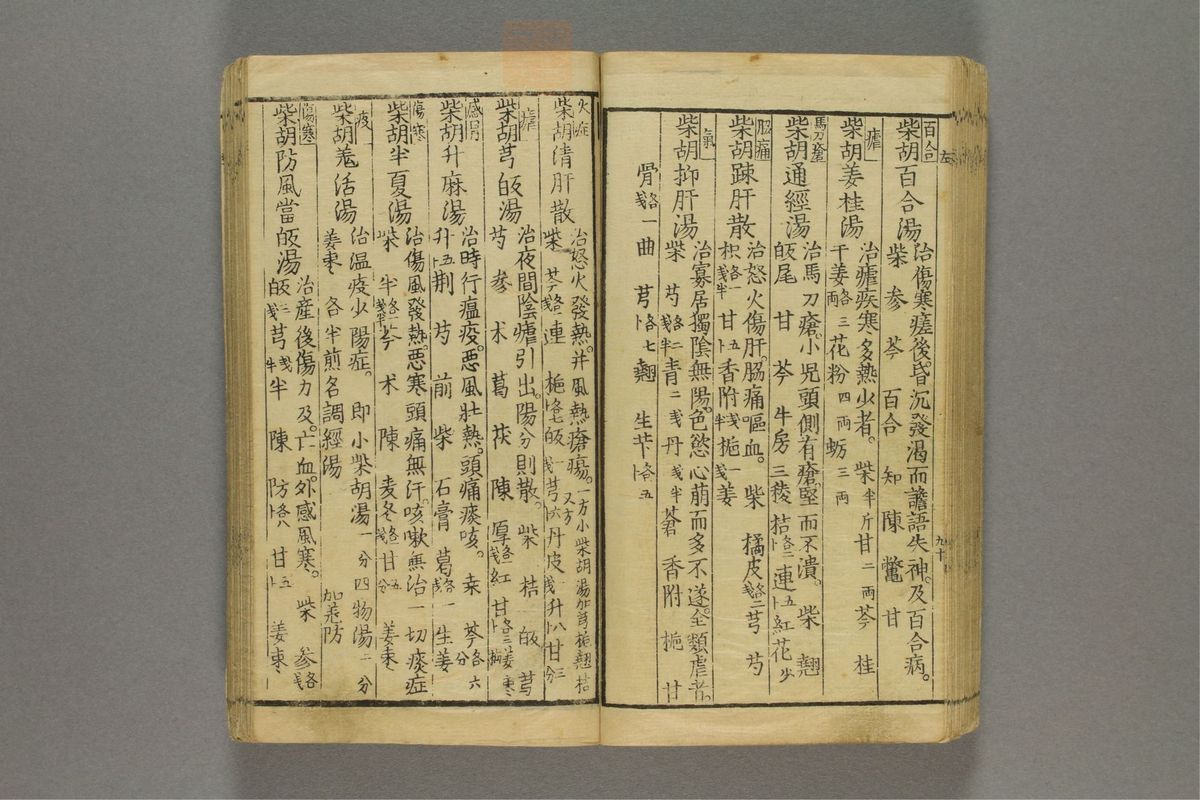 百合
柴胡百合湯
治傷寒瘥後。昏沉發渴而譫語失神。及百合病。
柴 参 芩 百合 知 陳 鱉 甘
瘧
柴胡姜桂湯
治瘧疾寒多熱少者。柴半斤甘二両芩 桂
干姜各三両花粉四両蛎三両
馬刀瘡
柴胡通經湯
治馬刀瘡。小児頭側有瘡。堅而不潰。柴 翹
皈尾 甘 芩 牛房 三稜 桔各二卜連五卜紅花少
脇痛
柴胡踈肝散
治怒火傷肝。脇痛嘔血。柴 橘皮各二戔芎 芍
枳各一戔半甘五卜香附戔半梔一戔姜
氣
柴胡抑肝湯
治寡居獨陰無陽。色慾心萠而多不遂。全類虐者。
柴 芍各二戔青二戔丹戔半蒼 香附 梔 甘
骨各一戔曲 芎各七卜翹 生苄各五卜
左
九十
火症
柴胡清肝散
治怒火發熱。并風熱瘡瘍。一方小柴胡湯加芎梔翹桔
柴 芩各二戔連 梔各七卜皈一戔芎六卜丹皮戔升八卜甘三分
瘧
柴胡芎皈湯
治夜間陰瘧引出。陽分則散。柴 桔 皈 芎
芍 参 术 葛 茯 陳 厚各一戔紅 甘各三卜姜枣
感冒
柴胡升麻湯
治時行瘟疫。悪風壯熱。頭痛痰咳。桒 芩各六分
升五卜荆 芍 前 柴 石膏 葛各一戔生姜
傷寒
柴胡半夏湯
治傷風發熱。悪寒頭痛無汗。咳嗽無治一切痰症
柴 半各一戔半芩 术 陳 麦冬各一戔甘五分 姜枣
疫
柴胡羗活湯
治温疫少陽症。即小柴胡湯一分四物湯二分加羗防
姜枣 各半煎名調經湯
傷寒
柴胡防風當皈湯
治産後傷力及。亡血。外感風寒。柴 参各戔
皈三戔芎戔半半 陳 防各八卜甘五卜 姜枣